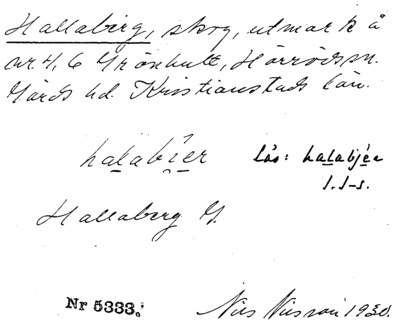 Hallaberg, skog, utmark å
nr 4, 6 Grönhult, Hörröds sn.
Gärds hd. Kristianstads län.
halabíer Läs: halabjer
l. l-s.
Hallaberg G.
Nr 5333. Nils Nilsson 1930.